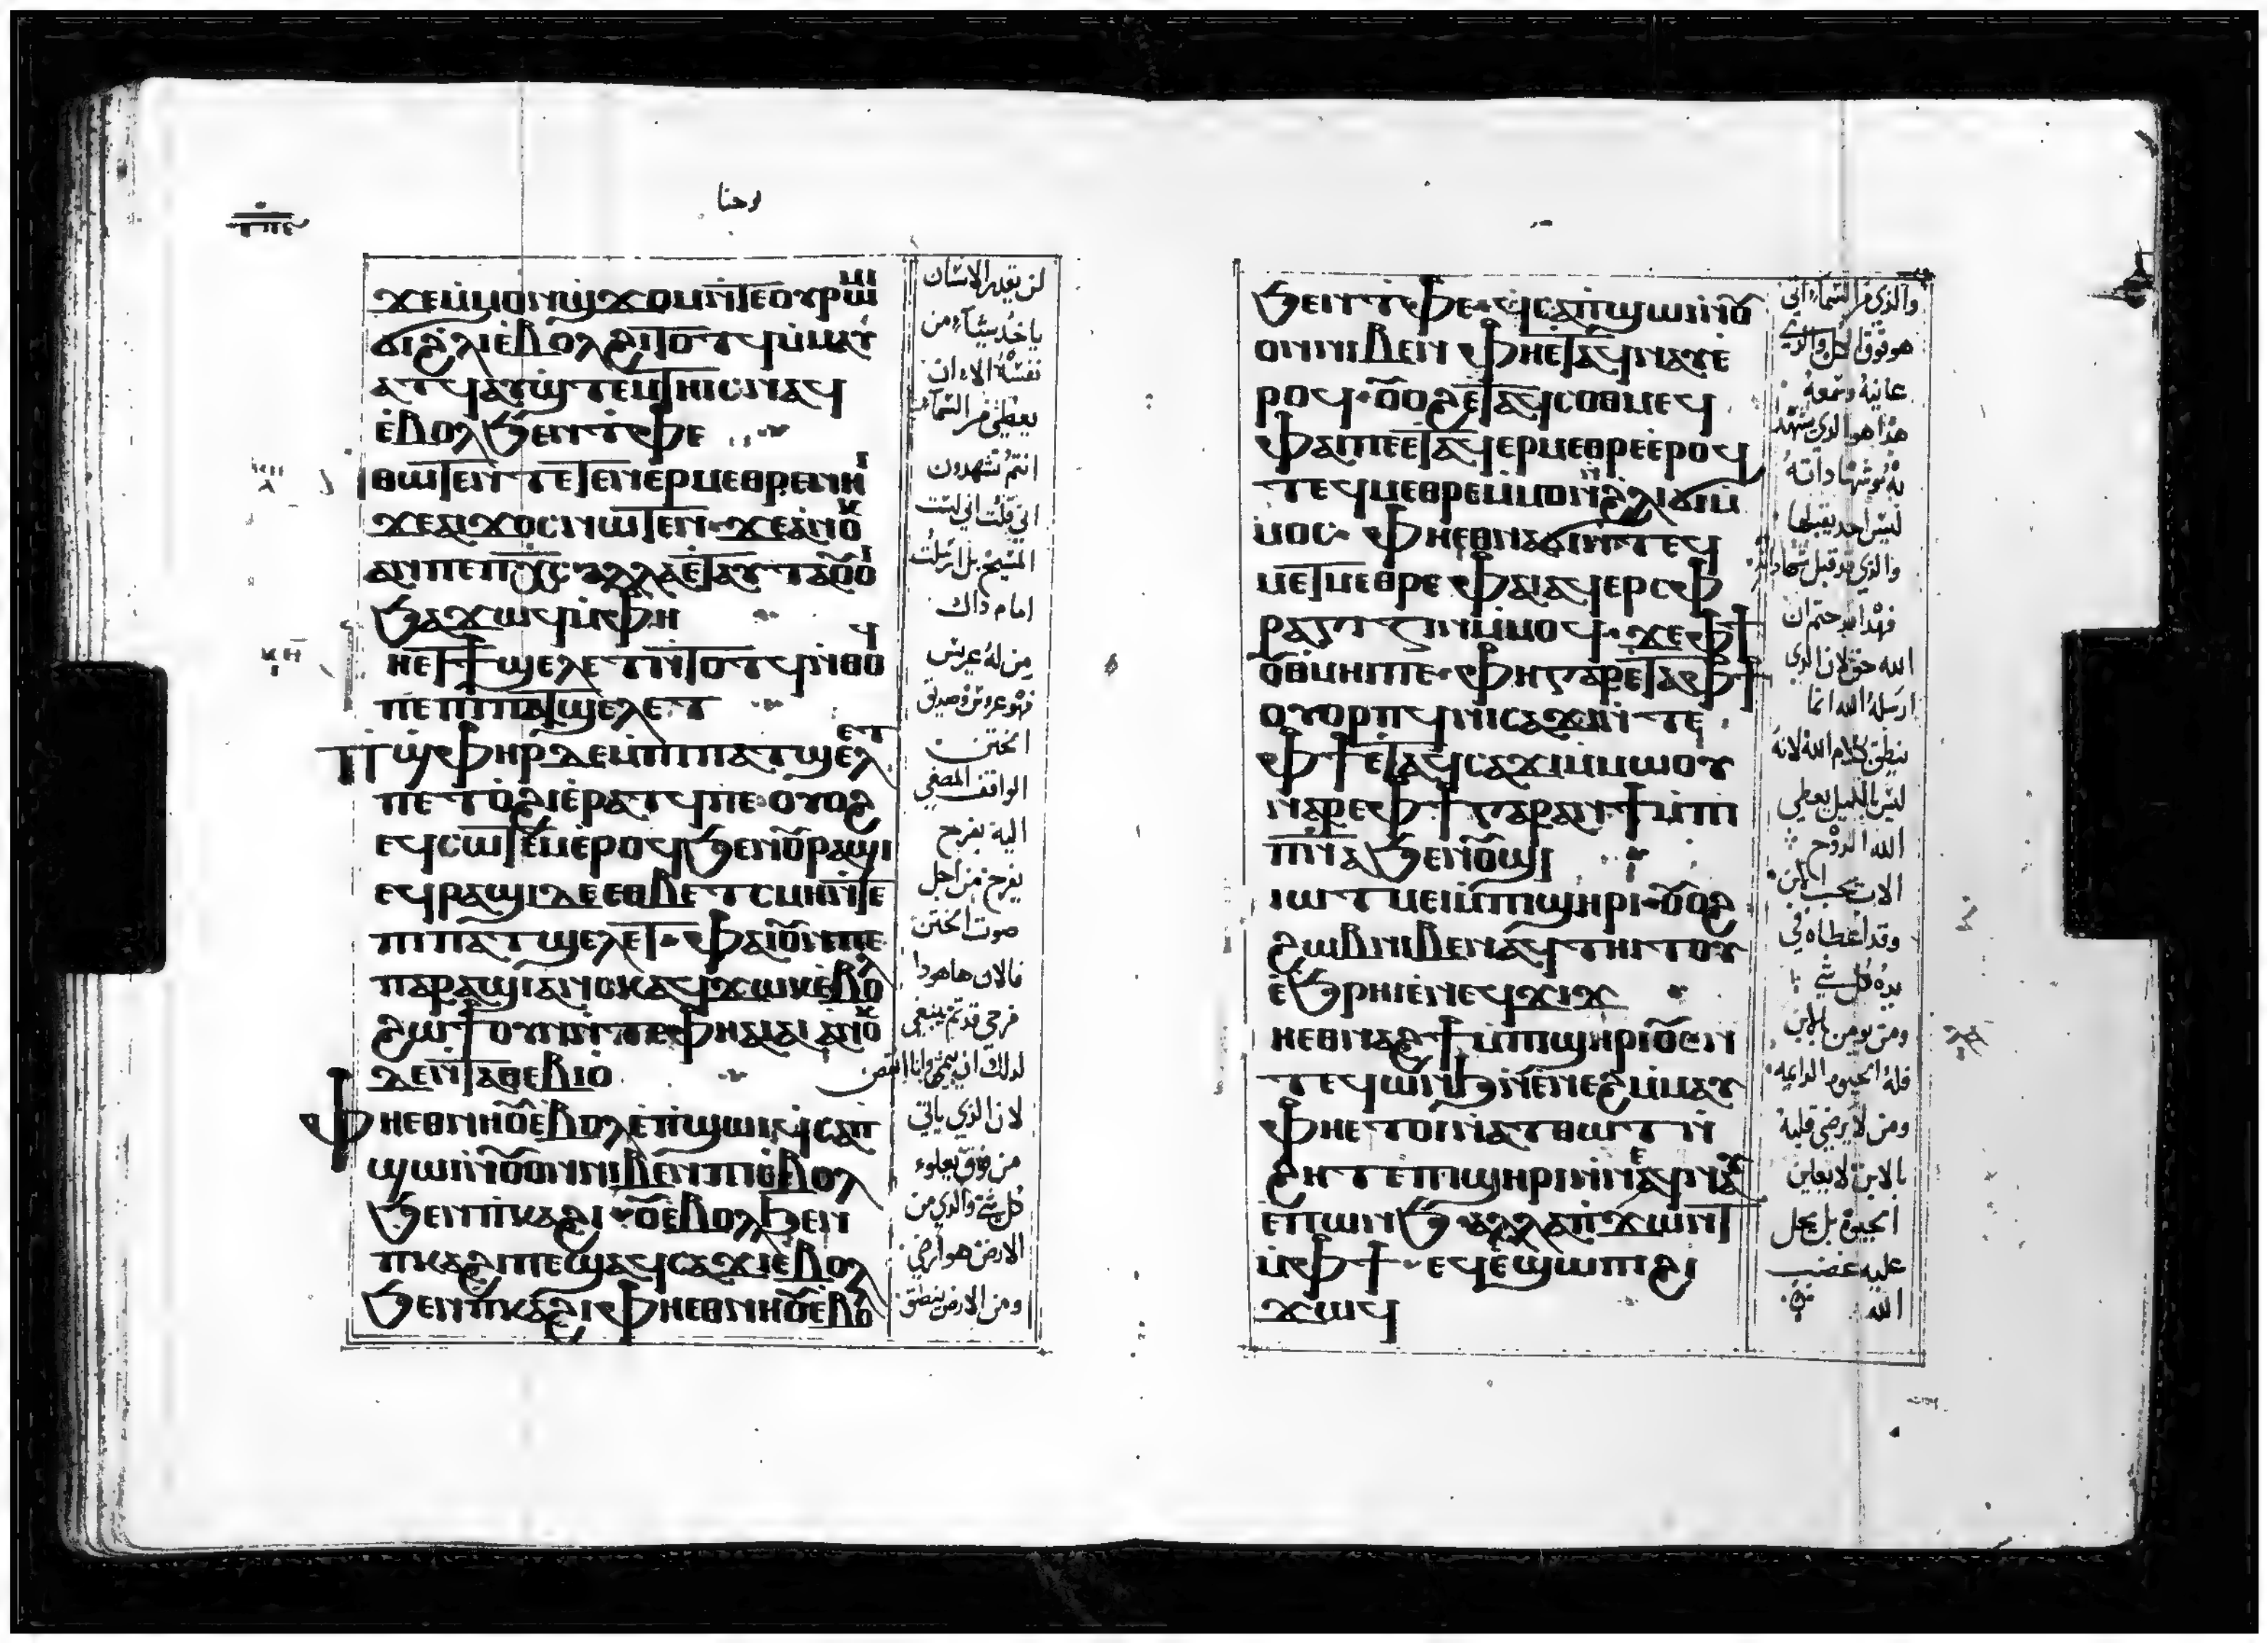 ϫⲉⲙⲙⲟⲛϣϫⲟⲙⲛⲧⲉⲟⲩⲣⲱⲙⲓ
ϭⲓϩⲗⲓⲉⲃⲟⲗϩⲓⲧⲟⲧϥⲙⲙⲁⲩ
ⲁⲧϥⲁⲩϣⲧⲉⲙⲧⲏⲓⲥⲛⲁϥ
ⲉⲃⲟⲗϧⲉⲛⲧⲫⲉ
ⲑⲱⲧⲉⲛⲧⲉⲧⲉⲛⲉⲣⲙⲉⲑⲣⲉⲛⲏⲓ
ϫⲉⲁⲓϫⲟⲥⲛⲱⲧⲉⲛ ϫⲉⲁⲛⲟⲕ
ⲁⲛⲡⲉⲡⲭⲥ ⲁⲗⲗⲁⲉⲧⲁⲩⲧⲁⲟⲩⲟⲓ
ϧⲁϫⲱϥⲙⲫⲏ
ⲛⲉⲧϯϣⲉⲗⲉⲧⲛⲧⲟⲧϥⲛⲑⲟϥ
ⲡⲉⲡⲓⲡⲁⲧϣⲉⲗⲉⲧ
ⲡϣⲫⲏⲣⲇⲉⲙⲡⲓⲡⲁⲧϣⲉⲗⲉⲧ
ⲡⲉⲧⲟϩⲓⲉⲣⲁⲧϥⲡⲉ ⲟⲩⲟϩ
ⲉϥⲥⲱⲧⲉⲙⲉⲣⲟϥϧⲉⲛⲟⲩⲣⲁϣⲓ
ⲉϥⲣⲁϣⲓⲇⲉⲉⲑⲃⲉⲧⲥⲙⲏⲛⲧⲉ
ⲡⲓⲡⲁⲧϣⲉⲗⲉⲧ ⲫⲁⲓⲟⲩⲛⲡⲉ
ⲡⲁⲣⲁϣⲓⲁⲛⲟⲕⲁϥϫⲱⲕⲉⲃⲟⲗ
ϩⲱϯⲟⲩⲛⲧⲉⲫⲏⲁⲓⲁⲓ ⲁⲛⲟⲕ
ⲇⲉⲛⲧⲁⲑⲉⲃⲓⲟ
ⲫⲏⲉⲑⲛⲏⲟⲩⲉⲃⲟⲗⲉⲡϣⲱⲓϥⲥⲁⲡ
ϣⲱⲓⲛⲟⲩⲟⲛⲛⲓⲃⲉⲛⲡⲓⲉⲃⲟⲗ
ϧⲉⲛⲡⲕⲁϩⲓ ⲟⲩⲉⲃⲟⲗϧⲉⲛ
ⲡⲕⲁϩⲓⲡⲉϣⲁϥⲥⲁϫⲓⲉⲃⲟⲗ
ϧⲉⲛⲡⲕⲁϩⲓⲫⲏⲉⲑⲛⲏⲟⲩⲉⲃⲟⲗ
لن يقدر الانسان
ياخد شياء من
نفسه الا ان
يعطي من السماء
انتم تشهدون
اني قلت اني لست
المسيح بل ارسلت
امام داك
من له عريس
فهو عروس وصديق
الختن
الواقف المصغي
اليه يفرح
يفرح من اجل
صوت الختن
فالان هاهودا
فرحي قد تم ينبغي
لدلك ان ينمي وانا انقص
لان الدي ياتي
من فوق يعلوا
كل شي والدي من
الارض هو ارضي
ومن الارض ينطق
ϧⲉⲛⲧⲫⲉ ϥⲥⲁⲡϣⲱⲓⲛⲟⲩ
ⲟⲛⲛⲓⲃⲉⲛ ⲫⲏⲉⲧⲁϥⲛⲁⲩⲉ
ⲣⲟϥ ⲟⲩⲟϩⲉⲧⲁϥⲥⲟⲑⲙⲉϥ
ⲫⲁⲓⲡⲉⲉⲧⲁϥⲉⲣⲙⲉⲑⲣⲉⲉⲣⲟϥ
ⲧⲉϥⲙⲉⲑⲣⲉⲙⲙⲟⲛϩⲗⲓϭⲓⲙ
ⲙⲟⲥ ⲫⲏⲉⲑⲛⲁϭⲓⲛⲧⲉϥ
ⲙⲉⲧⲙⲉⲑⲣⲉ ⲫⲁⲓⲁϥⲉⲣⲥⲫ
ⲣⲁⲅⲓⲍⲓⲛⲙⲙⲟϥ ϫⲉⲫϯ
ⲟⲩⲑⲙⲏⲓⲡⲉ ⲫⲏⲅⲁⲣⲉⲧⲁⲫϯ
ⲟⲩⲟⲣⲡϥⲛⲓⲥⲁϫⲓⲛⲧⲉ
ⲫϯⲉⲧⲁϥⲥⲁϫⲓⲙⲙⲱⲟⲩ
ⲛⲁⲣⲉⲫϯⲅⲁⲣⲁⲛϯⲙⲡⲓ
ⲡⲛⲁϧⲉⲛⲟⲩϣⲓ
ⲓⲱⲧⲙⲉⲓⲙⲡϣⲏⲣⲓ ⲟⲩⲟϩ
ϩⲱⲃⲛⲓⲃⲉⲛⲁϥⲧⲏⲓⲧⲟⲩ
ⲉϧⲣⲏⲓⲉⲛⲉϥϫⲓϫ
ⲛⲉⲑⲛⲁϩϯⲙⲡϣⲏⲣⲓⲟⲩⲉⲛ
ⲧⲉϥⲱⲛϧⲛⲉⲛⲉϩⲙⲙⲁⲩ
ⲫⲏⲉⲧⲟⲓⲛⲁⲧⲑⲱⲧⲛ
ϩⲏⲧⲉⲡϣⲏⲣⲓⲛⲛⲉϥⲛⲁⲩ
ⲉⲡⲱⲛϧ ⲁⲗⲗⲁⲡϫⲱⲛⲧ
ⲙⲫϯ ⲉϥⲉϣⲱⲡⲓϩⲓ
ϫⲱϥ
والدي من السماء اتي
هو فوق الكل والدي
عاينه وسمعه
هدا هو الدي يشهد
به وشهاداته
ليس احد يقبلها
والدي يقبل شهادته
فهدا قد ختم ان
الله حق لان الدي
ارسله الله انما
ينطق بكلام الله لانه
ليس بالكيل يعطي
الله الروح
الاب يحب الابن
وقد اعطاه في
يده كل شي
ومن يومن بالابن
فله الحيوه الدايمه
ومن لا يرضي قلبه
بالابن لا يعاين
الحيوه بل يحل
عليه غضب
الله